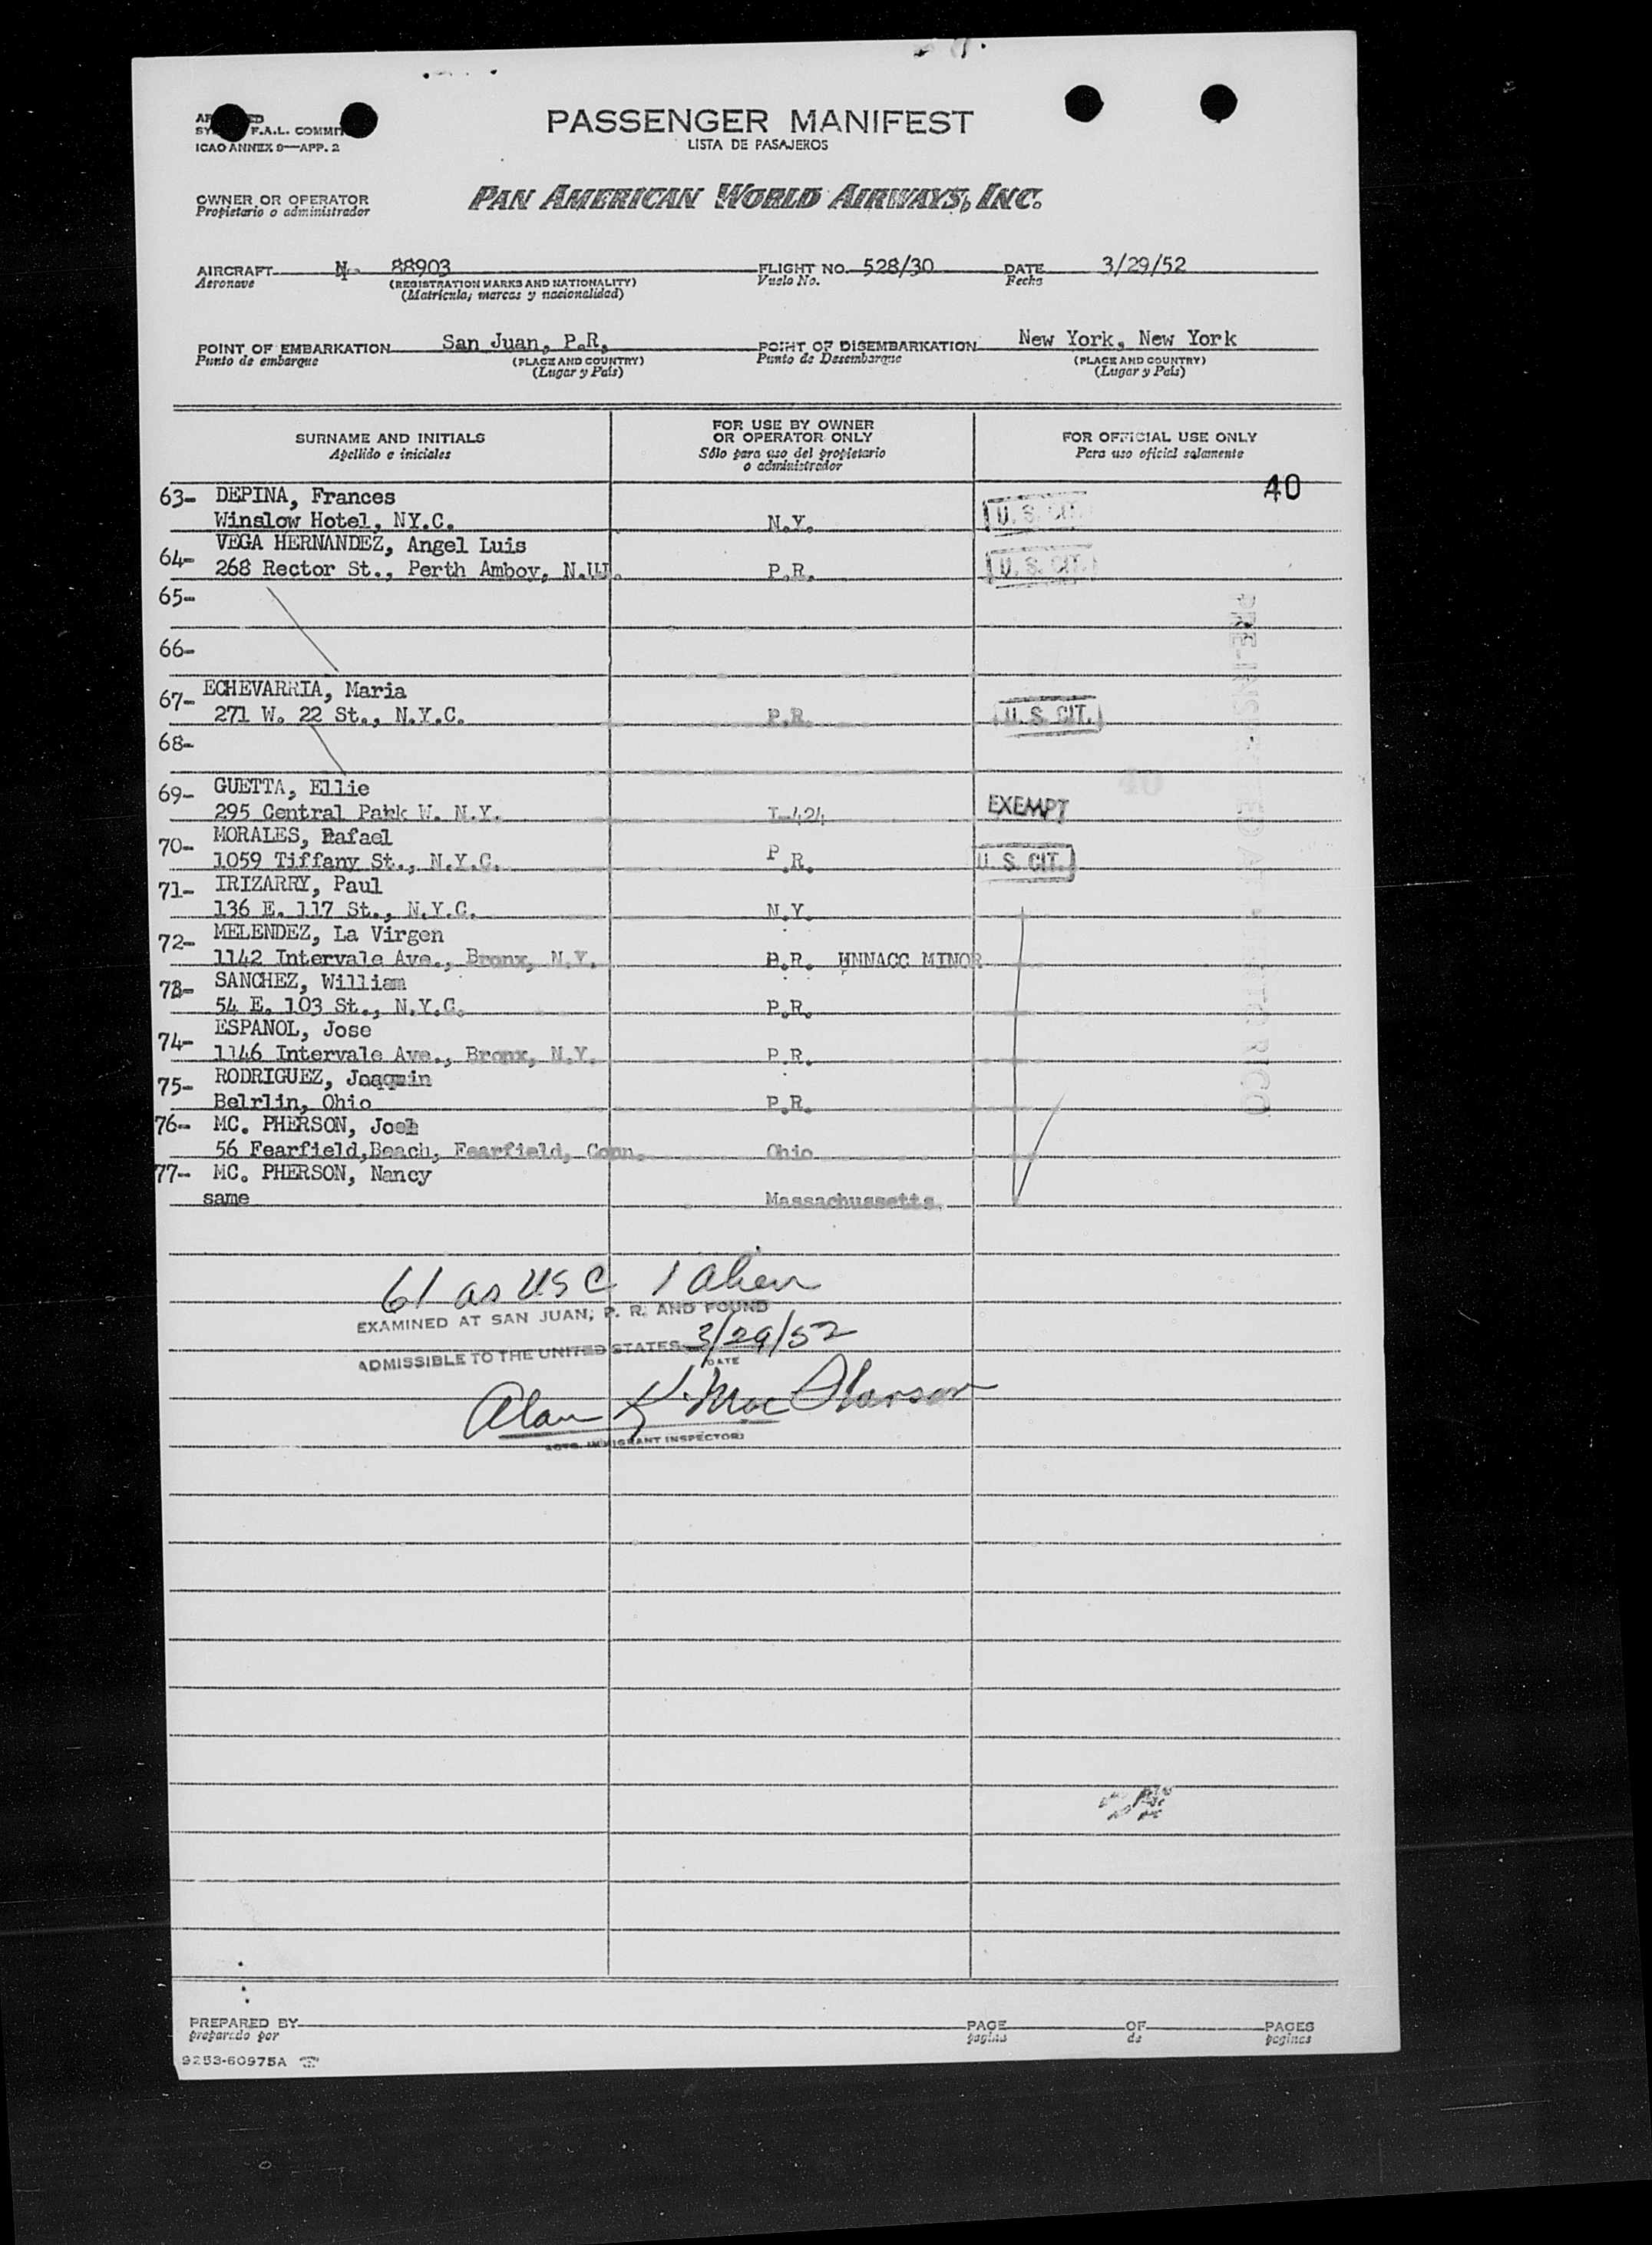 PASSENGER MANIFEST
LISTA DE PASAJEROS
F.A.L.
ICAO ANNEX 9—APP. 2
OWNER OR OPERATOR
Propietario o administrador
PAN AMERICAN WORLD AIRWAYS, INC.
AIRCRAFT N- 88903 FLIGHT NO. 528/30 DATE 3/29/52
Aeronave (REGISTRATION MARKS AND NATIONALITY) Vuelo No. Fecha
(Matrícula, marcas y nacionalidad)
POINT OF EMBARKATION San Juan, P.R. POINT OF DISEMBARKATION New York, New York
Punto de embarque (PLACE AND COUNTRY) Punto de Desembarque (PLACE AND COUNTRY)
(Lugar y País) (Lugar y País)
SURNAME AND INITIALS
Apellido e iniciales
FOR USE BY OWNER
OR OPERATOR ONLY
Sólo para uso del propietario
o administrador
FOR OFFICIAL USE ONLY
Para uso oficial solamente
40
63- DEPINA, Frances
Winslow Hotel, NY.C. N.Y. U. S. CIT.
64- VEGA HERNANDEZ, Angel Luis
268 Rector St., Perth Amboy, P.R. U. S. CIT.
65-
66-
67- ECHEVARRIA, Maria
271 W. 22 St., N.Y.C. P.R. U. S. CIT.
68-
69- GUETTA, Ellie
295 Central Park W. N.Y. I-424 EXEMPT
70- MORALES, Rafael
1059 Tiffany St., N.Y.C. P.R. U. S. CIT.
71- IRIZARRY, Paul
136 E. 117 St., N.Y.C. N.Y.
72- MELENDEZ, La Virgen
1142 Intervale Ave., Bronx, N.Y. P.R. UNNACC MINOR
73- SANCHEZ, William
54 E. 103 St., N.Y.C. P.R.
74- ESPANOL, Jose
1146 Intervale Ave., Bronx, N.Y. P.R.
75- RODRIGUEZ, Joaquin
Belrlin, Ohio P.R.
76- MC. PHERSON,
56 Fearfield,Beach, Fearfield, Conn. Ohio
77- MC. PHERSON, Nancy
same Massachussetts.
61 as USC 1 alien
EXAMINED AT SAN JUAN, P. R. AND FOUND
ADMISSIBLE TO THE UNITED STATES 3/29/52
DATE
Alan K. Mac
IMMIGRANT INSPECTOR
PREPARED BY PAGE OF PAGES
preparado por página de páginas
9253-60975A